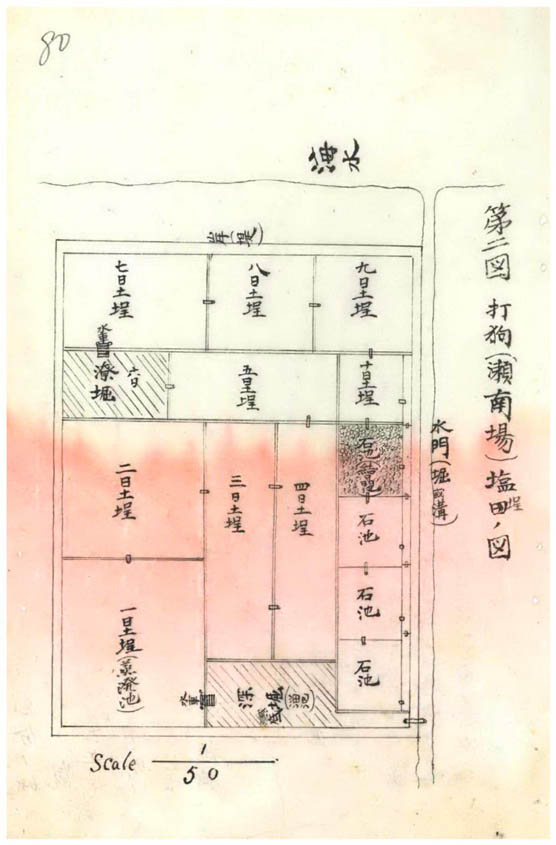 80
海水
第二図 打狗(瀬南場)塩田ノ図
埕
岸(堤)
七日土埕
八日土埕
九日土埕
水車
潦堀
六日
五日土埕
十日土埕
水門(堀或溝)
二日土埕
三日土埕
四日土埕
石池
石池
石池
石池
一日土埕(蒸溌池)
水車
深堀
(溜池)
Scale 1/50